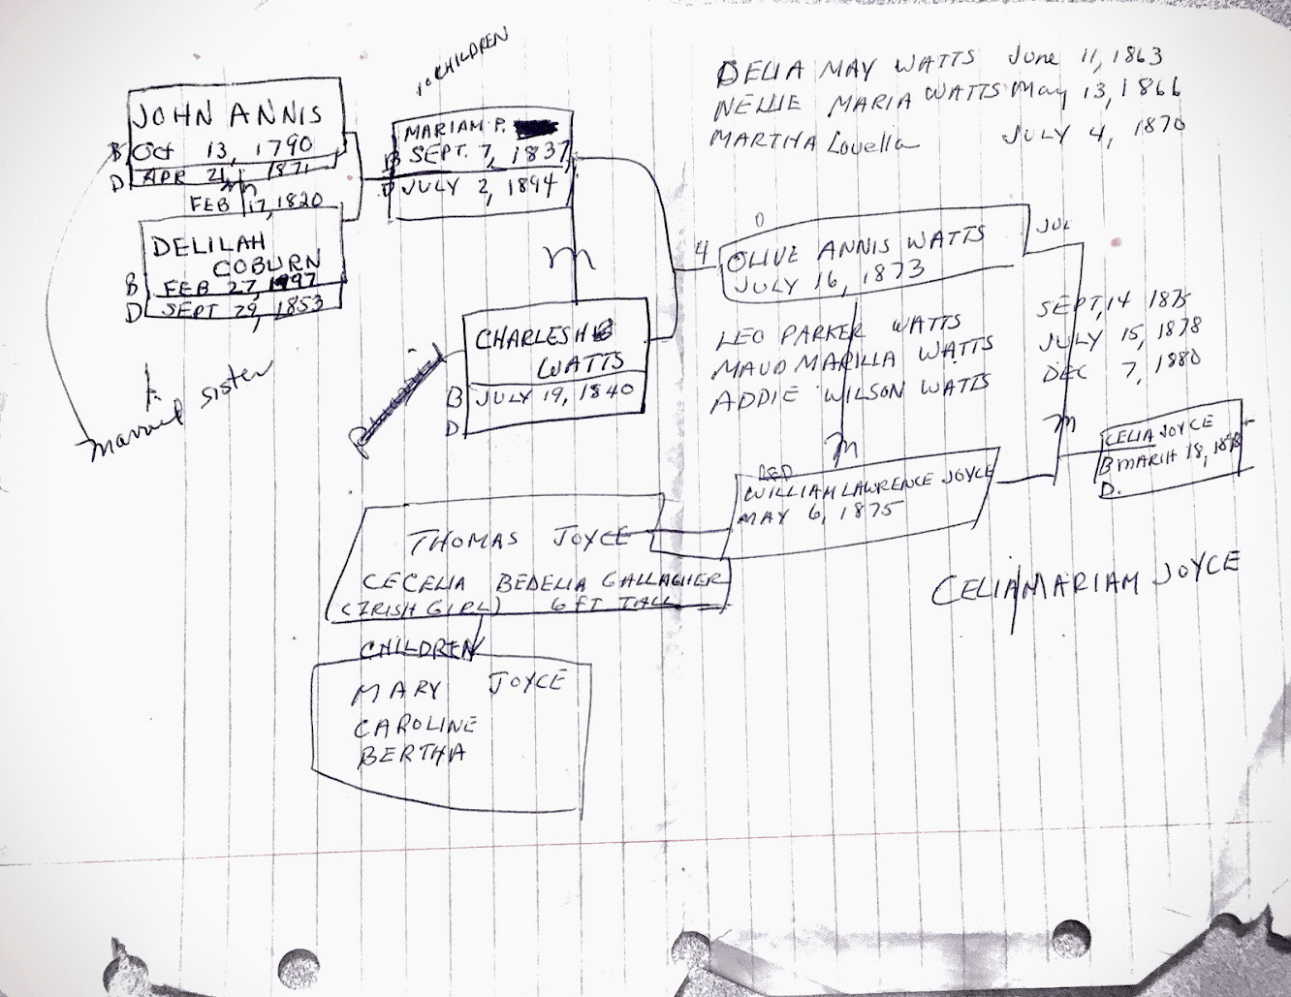 10 CHILDREN
JOHN ANNIS
B Oct 13, 1790
D APR 21, 1871
m
FEB 17, 1820
DELILAH
COBURN
B FEB 27, 1797
D SEPT 29, 1853
married sister
MARIAM P.
B SEPT. 7, 1837
D JULY 2, 1894
m
CHARLES H
WATTS
B JULY 19, 1840
D
DELIA MAY WATTS June 11, 1863
NELLIE MARIA WATTS May 13, 1866
MARTHA Louella JULY 4, 1870
4
OLIVE ANNIS WATTS
JULY 16, 1873
JUL
LEO PARKER WATTS SEPT, 14 1875
MAUD MARILLA WATTS JULY 15, 1878
ADDIE WILSON WATTS DEC 7, 1880
m
m
WILLIAM LAWRENCE JOYCE
MAY 6, 1875
CELIA JOYCE
B MARCH 18,
D.
CELIA MARIAM JOYCE
THOMAS JOYCE
CECELIA BEDELIA GALLAGHER
(IRISH GIRL) 6 FT TALL
CHILDREN
MARY JOYCE
CAROLINE
BERTHA